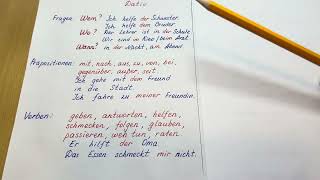 Dativ
Fragen: Wem? Ich helfe der Schwester.
Ich helfe dem Bruder
Wo? Der Lehrer ist in der Schule
Wir sind im Kino/beim Arzt.
Wann? in der Nacht, am Abend
Präpositionen: mit, nach, aus, zu, von, bei,
gegenüber, außer, seit.
Ich gehe mit dem Freund
in die Stadt.
Ich fahre zu meiner Freundin.
Verben: geben, antworten, helfen,
schmecken, folgen, glauben,
passieren, weh tun, raten.
Er hilft der Oma
Das Essen schmeckt mir nicht.